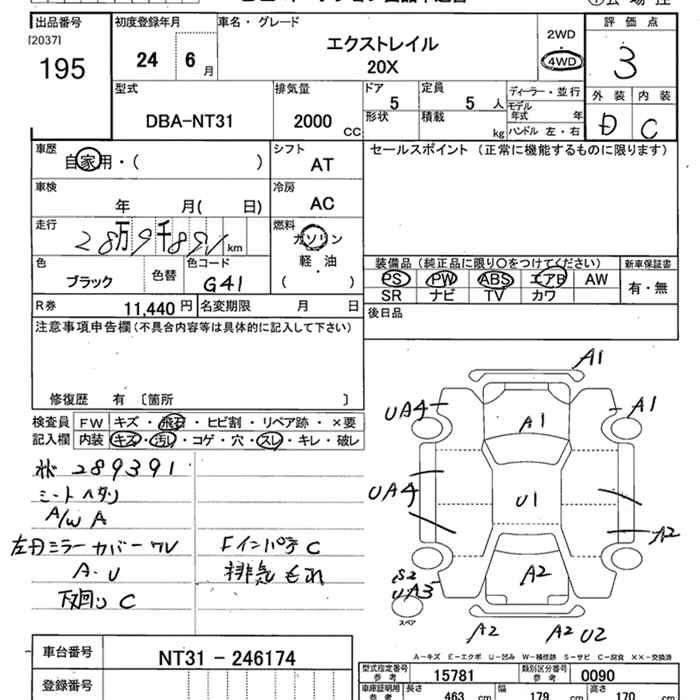 出品番号 初度登録年月 車名・グレード 評価点
[2037]
195 24 6月 エクストレイル 20X 2WD・4WD 3
型式 排気量 ドア 定員 ディーラー・並行 外装 内装
DBA-NT31 2000cc 5 5人 モデル年式 年 D C
形状 積載 kg ハンドル 左・右
車歴 自家用・( ) シフト AT セールスポイント (正常に機能するものに限ります)
車検 年 月( 日) 冷房 AC
走行 28万9千 km 燃料 ガソリン 軽・油 (・)
色 ブラック 色替 色コード G41
装備品(純正品に限り○をつけてください) 新車保証書
PS PW ABS エアB AW 有・無
SR ナビ TV カワ
R券 11,440円 名変期限 月 日 後日品
注意事項申告欄(不具合内容等は具体的に記入して下さい)
修復歴 有 〔箇所 〕
検査員 FW キズ・飛石・ヒビ割・リペア跡・×要
記入欄 内装 キズ・汚レ・コゲ・穴・スレ・キレ・破レ
289391
シートヘタリ
A/W A
左右ミラーカバーワレ Fインパチ C
A・U 排気もれ
下廻り C
A1
UA4 A1 A1
UA4 U1 A2
S2
UA3 A2
スペア
A2 A2 U2
A-キズ E-エクボ U-凹み W-補修跡 S-サビ C-腐食 XX-交換済
車台番号 NT31-246174
登録番号
型式指定番号 参考 15781 類別区分番号 参考 0090
車庫証明用 参考 長さ 463 cm 幅 179 cm 高さ 170 cm